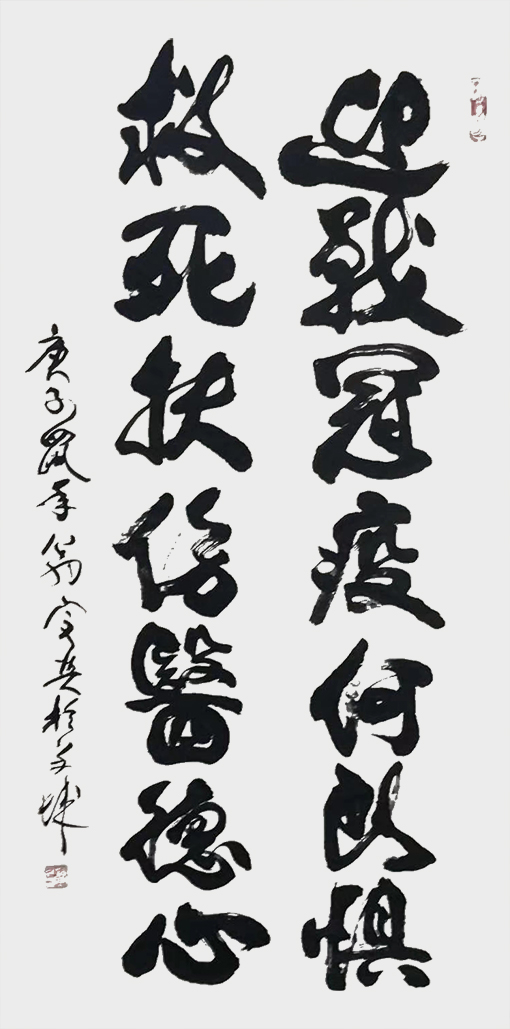 迎戰冠疫何所懼
救死扶傷醫德心
庚子鼠年翁安英於羊城